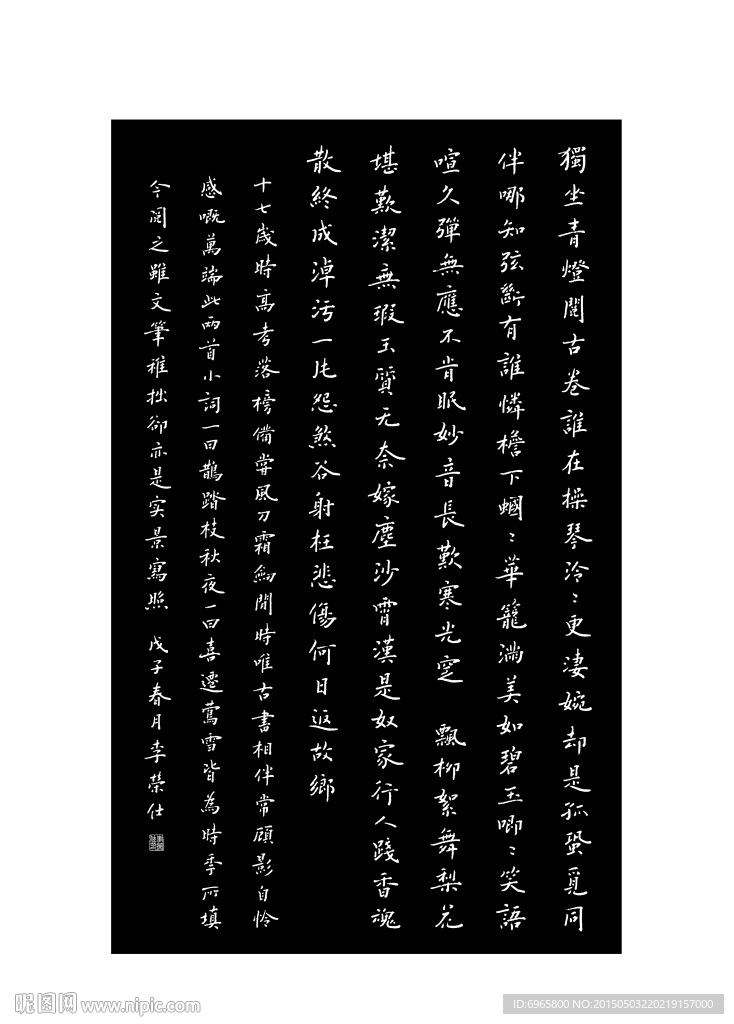 獨坐青燈閱古卷誰在操琴泠〻更淒婉却是孤蛩覓同
伴哪知弦斷有誰憐檐下蟈〻華籠滿美如碧玉唧〻笑語
喧久彈無應不肯眠妙音長歎寒光寔 飄柳絮舞梨花
堪歎潔無瑕玉質无奈嫁塵沙霄漢是奴家行人踐香魂
散終成淖污一氏怨煞谷射枉悲傷何日返故鄉
十七歲時高考落榜備嘗風刀霜劍閒時唯古書相伴常顧影自怜
感嘅萬端此兩首小詞一曰鵲踏枝秋夜一曰喜遷鶯雪皆為時季所填
今閱之雖文筆稚拙卻亦是实景寫照 戊子春月李榮仕
昵图网 www.nipic.com
ID:6965800 NO:20150503220219157000